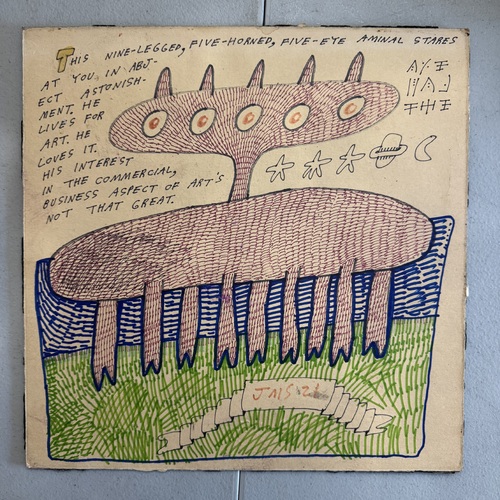 THIS NINE-LEGGED, FIVE-HORNED, FIVE-EYE AMINAL STARES
AT YOU IN ABJ-
ECT ASTONISH-
MENT. HE
LIVES FOR
ART. HE
LOVES IT.
HIS INTEREST
IN THE COMMERCIAL,
BUSINESS ASPECT OF ART'S
NOT THAT GREAT.